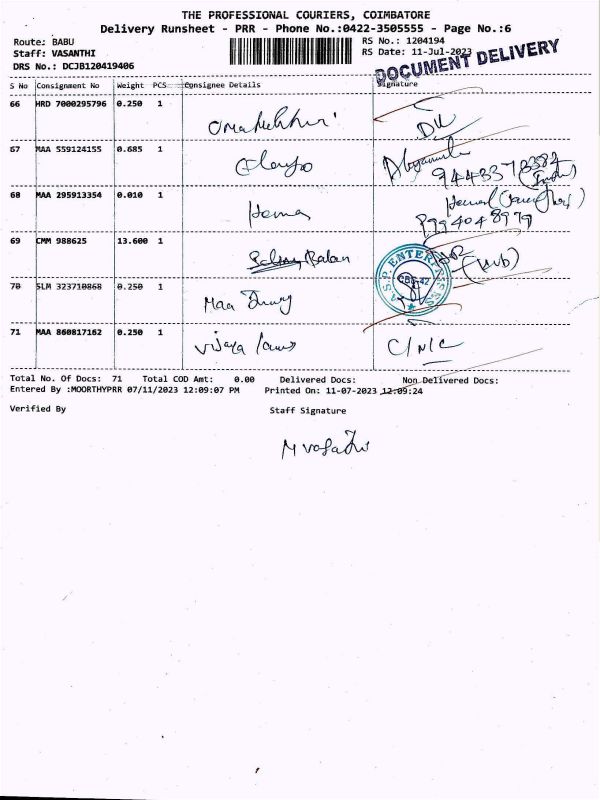 THE PROFESSIONAL COURIERS, COIMBATORE
Delivery Runsheet - PRR - Phone No.:0422-3505555 - Page No.:6
Route: BABU
RS No.: 1204194
Staff: VASANTHI
RS Date: 11-Jul-2023
DRS No.: DCJB120419406
DOCUMENT DELIVERY
S No Consignment No Weight PCS Consignee Details Signature
66 HRD 7000295796 0.250 1
67 MAA 559124155 0.685 1
9443378384
68 MAA 295913354 0.010 1 Hema
9994048979
69 CMM 988625 13.600 1 Balan
S.P. ENTERPRISES
CBE-42
70 SLM 323710868 0.250 1 Maa
71 MAA 860817162 0.250 1 Vijaya
Total No. Of Docs: 71 Total COD Amt: 0.00 Delivered Docs: Non Delivered Docs:
Entered By :MOORTHYPRR 07/11/2023 12:09:07 PM Printed On: 11-07-2023 12:09:24
Verified By Staff Signature